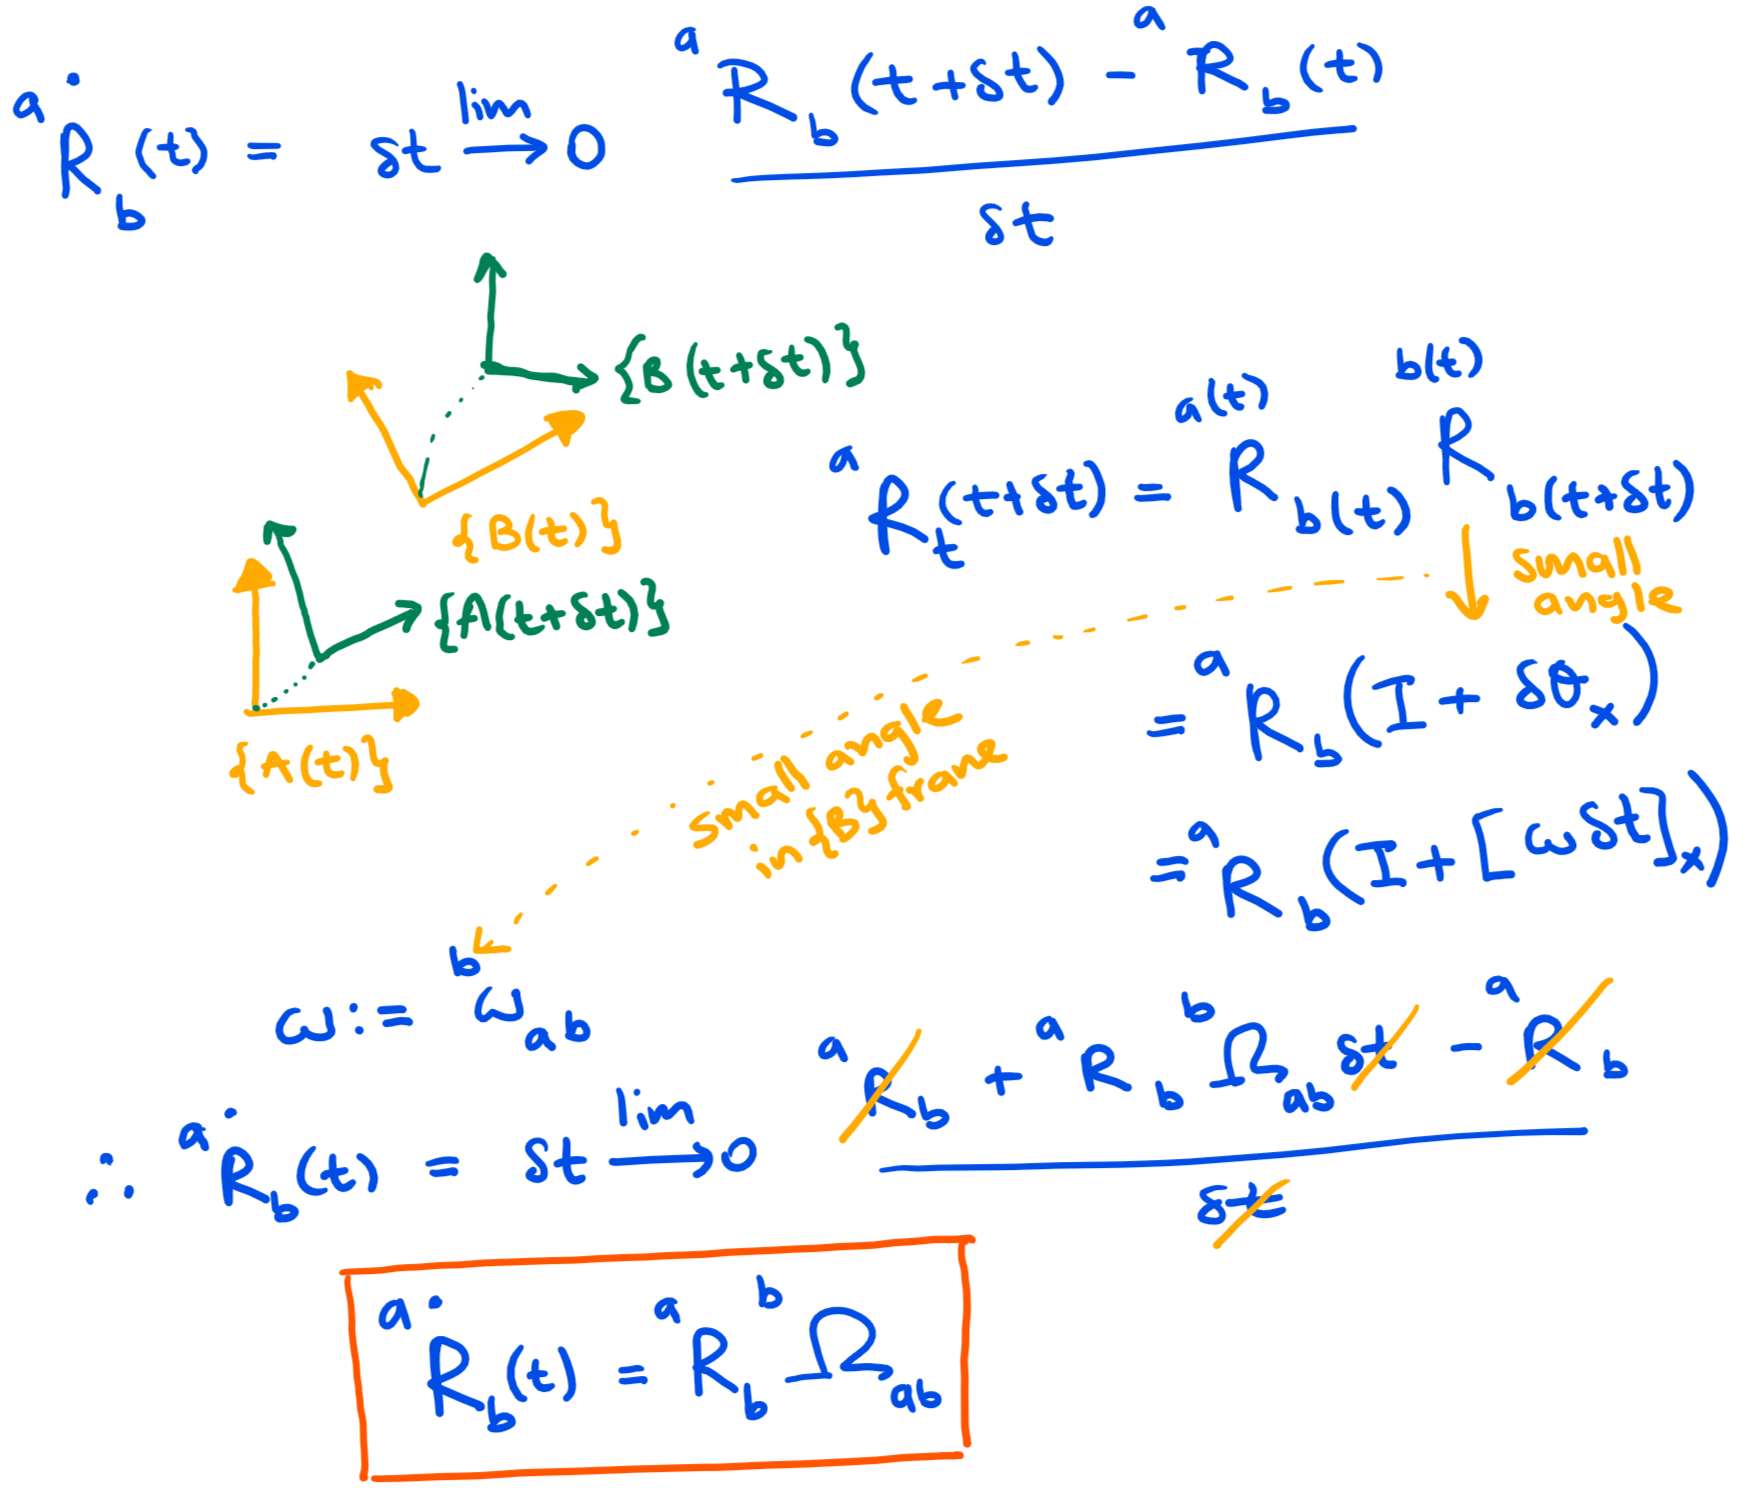 ᵃṘ_b(t) = δt lim→ 0 (ᵃR_b(t+δt) − ᵃR_b(t)) / δt
{B(t+δt)}
{B(t)}
{A(t+δt)}
{A(t)}
ᵃR_t(t+δt) = ᵃ⁽ᵗ⁾R_b(t) ᵇ⁽ᵗ⁾R_b(t+δt)
small
angle
= ᵃR_b(I + δθ_x)
small angle
in {B} frane
= ᵃR_b(I + [ωδt]_x)
ω := ᵇω_ab
∴ ᵃṘ_b(t) = δt lim→ 0 (ᵃR_b + ᵃR_b ᵇΩ_ab δt − ᵃR_b) / δt
ᵃṘ_b(t) = ᵃR_b ᵇΩ_ab